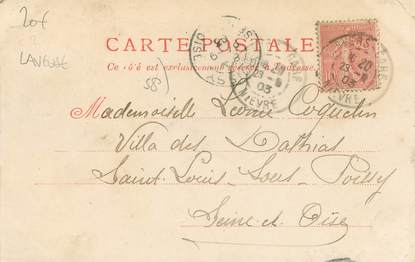 20f
LANGUE
58
CARTE POSTALE
Ce côté est exclusivement réservé à l'adresse.
NIEVRE
23
03
Mademoiselle Léonie Coquelin
Villa des Mathias
Saint-Louis-Sous-Poissy
Seine-et-Oise